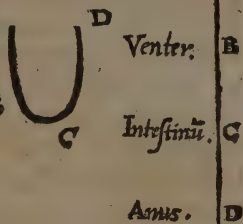 D
Venter. B
C
Intestinũ. C
Anus. D